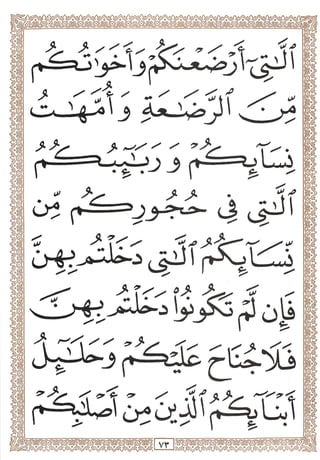 ٱلَّٰتِىٓ أَرْضَعْنَكُمْ وَأَخَوَٰتُكُم
مِّنَ ٱلرَّضَٰعَةِ وَأُمَّهَٰتُ
نِسَآئِكُمْ وَرَبَٰٓئِبُكُمُ
ٱلَّٰتِى فِى حُجُورِكُم مِّن
نِّسَآئِكُمُ ٱلَّٰتِى دَخَلْتُم بِهِنَّ
فَإِن لَّمْ تَكُونُوا۟ دَخَلْتُم بِهِنَّ
فَلَا جُنَاحَ عَلَيْكُمْ وَحَلَٰٓئِلُ
أَبْنَآئِكُمُ ٱلَّذِينَ مِنْ أَصْلَٰبِكُمْ
٧٣